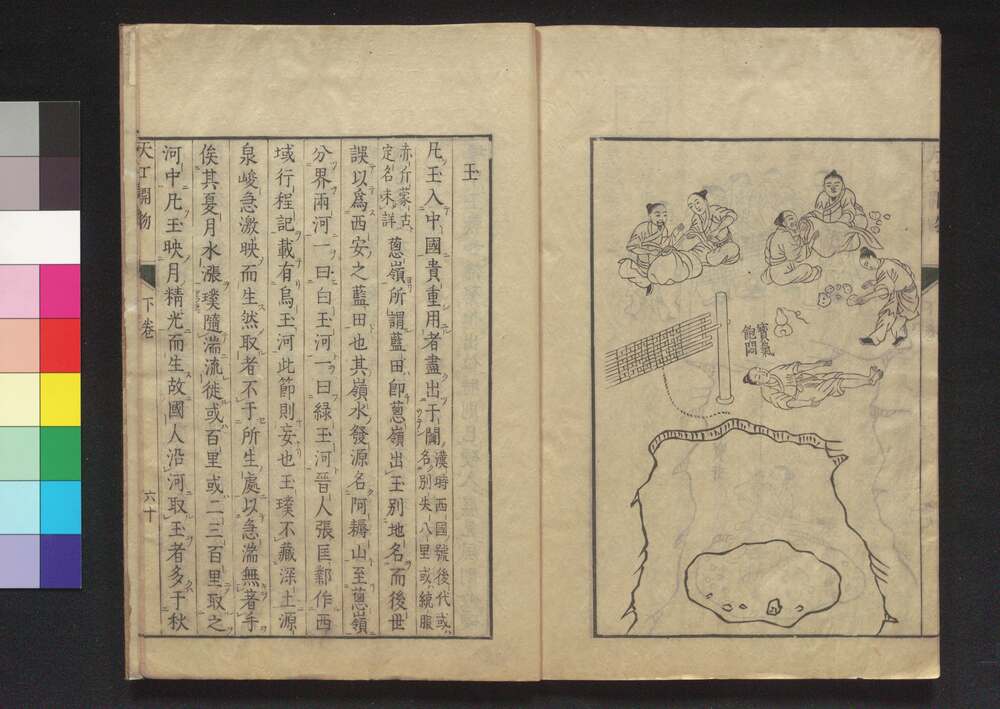 寶氣
飽悶
玉
凡玉入中國貴重用者盡出于闐漢時西國號後代或名別失八里或統服
赤斤蒙古定名未詳葱嶺所謂藍田即葱嶺出玉別地名而後世
誤以爲西安之藍田也其嶺水發源名阿耨山至葱嶺
分界兩河一曰白玉河一曰緑玉河晉人張匡鄴作西
域行程記載有烏玉河此節則妄也玉璞不藏深土源
泉峻急激映而生然取者不于所生處以急湍無著手
俟其夏月水漲璞隨湍流徙或百里或二三百里取之
河中凡玉映月精光而生故國人沿河取玉者多于秋
天工開物
下卷
六十